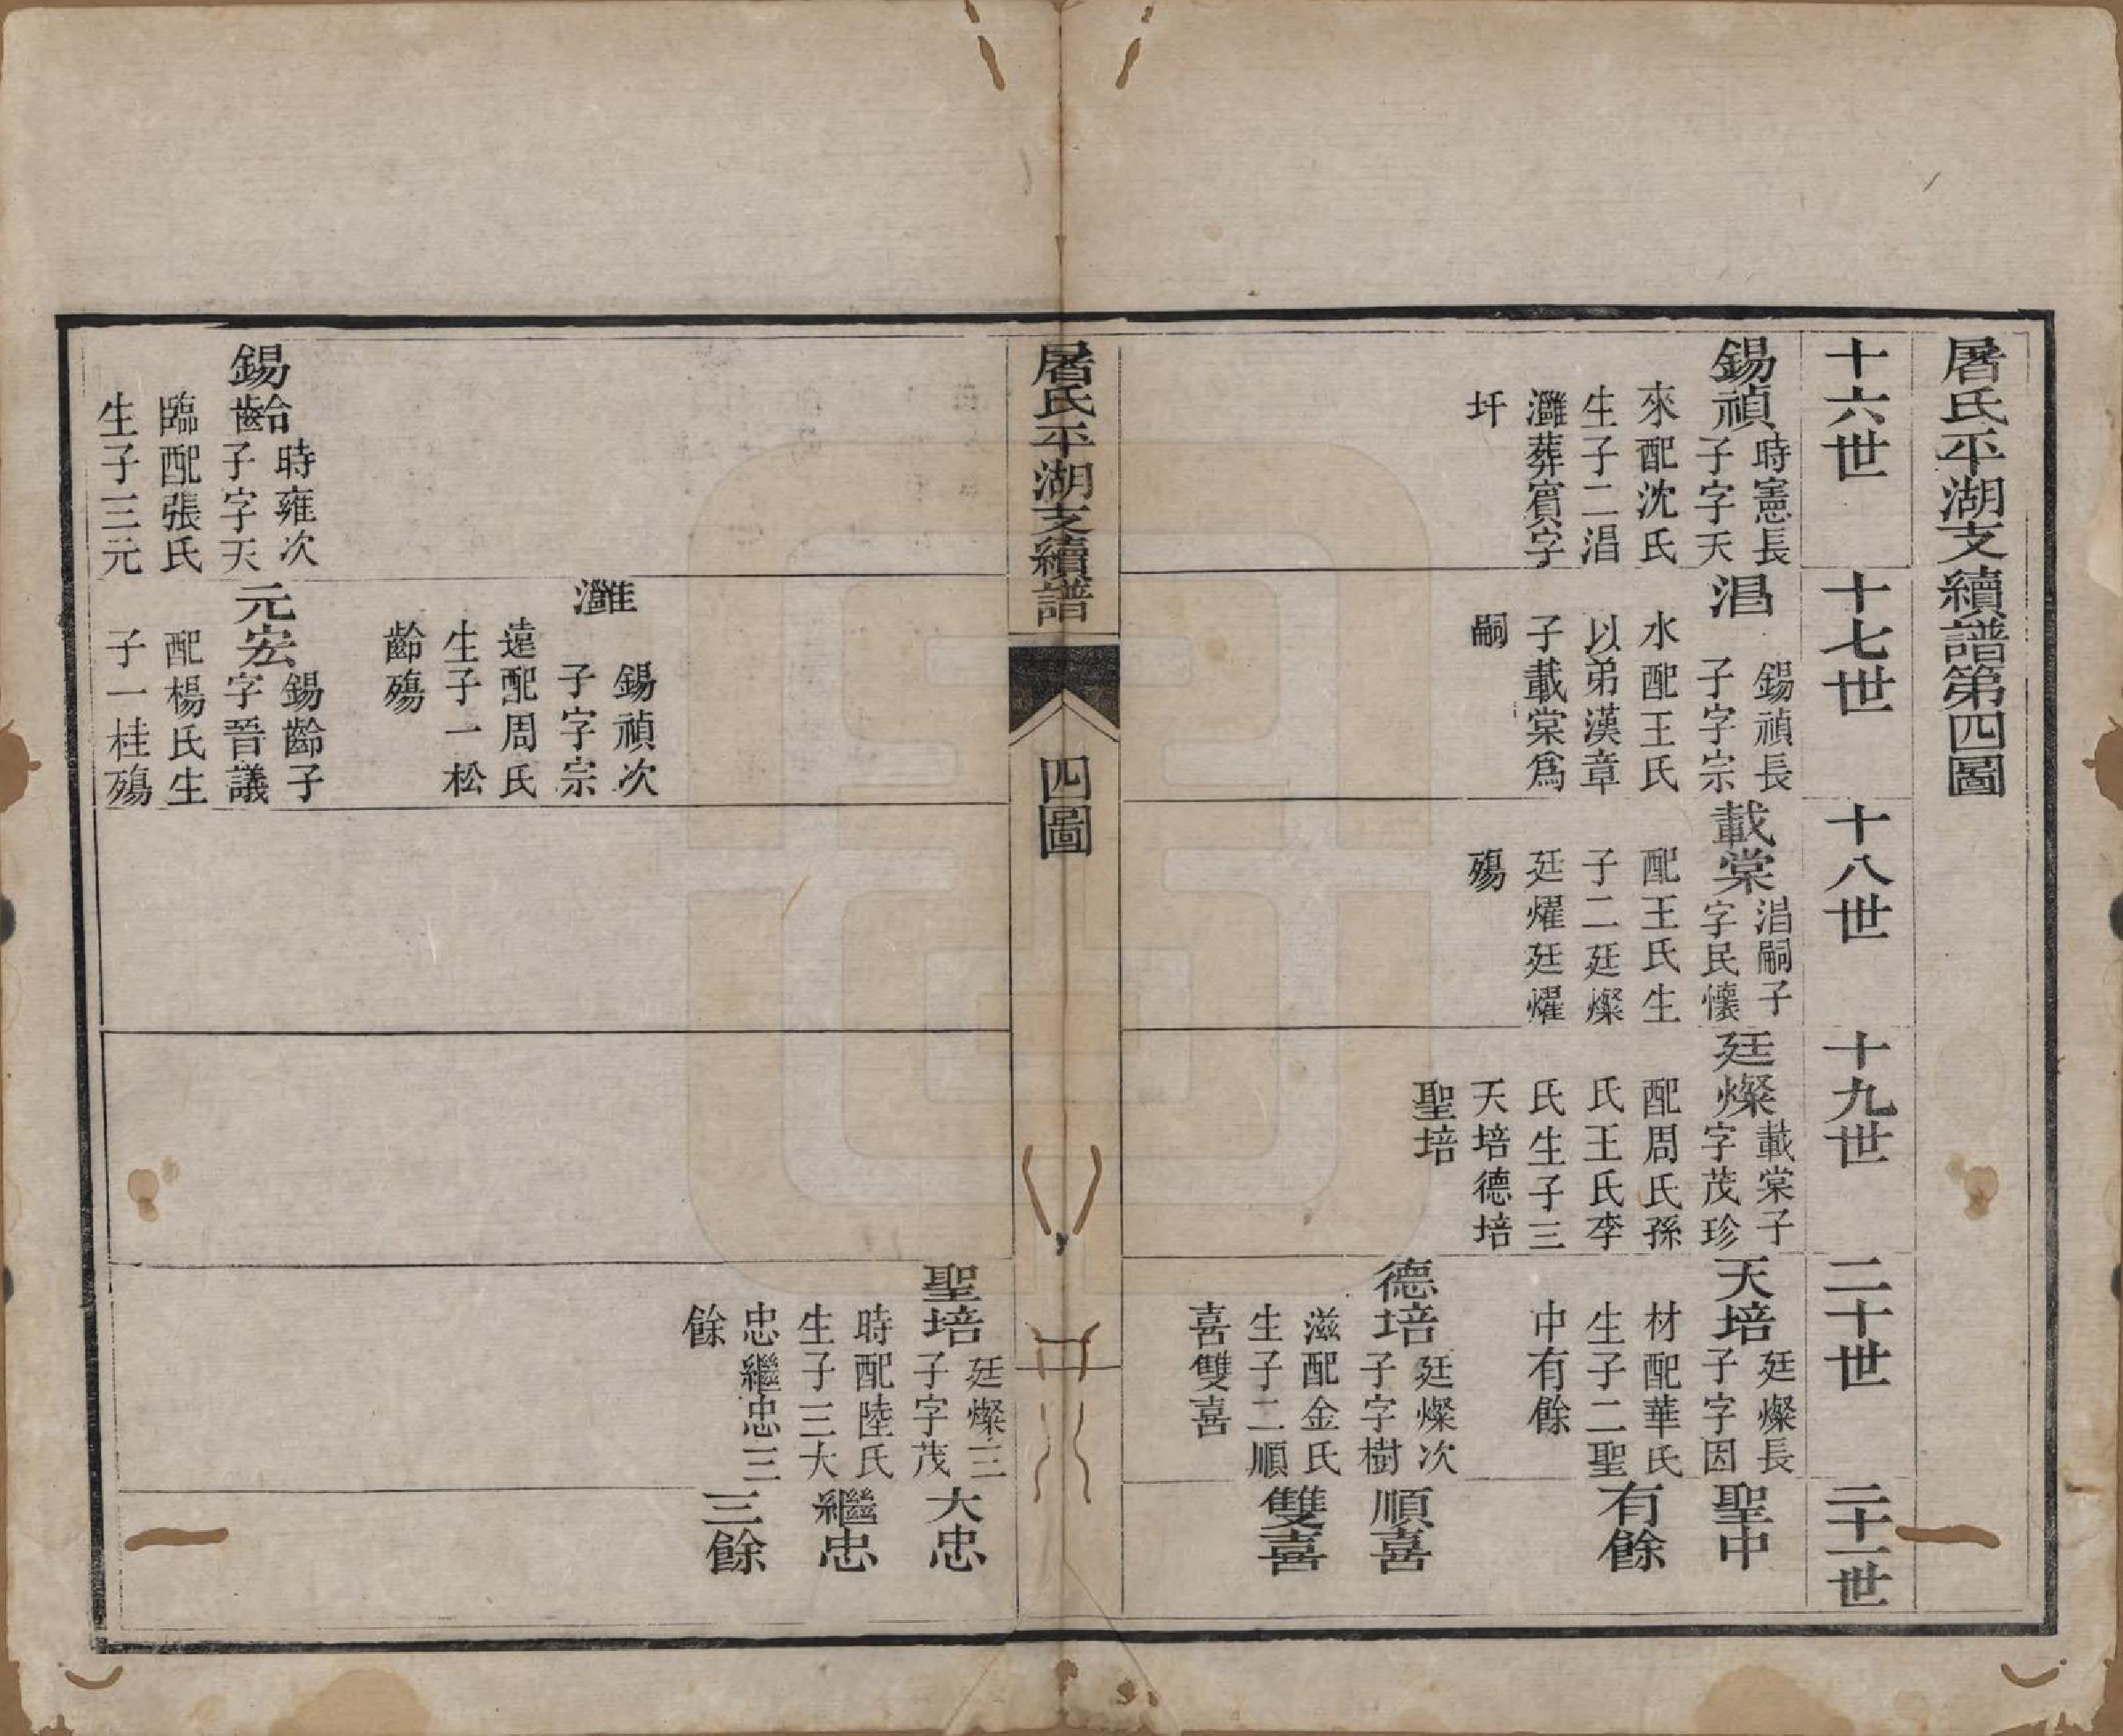 屠氏平湖支續譜第四圖
十六世
十七世
十八世
十九世
二十世
二十一世
錫禎
時憲長
子字天
來配沈氏
生子二淐
灉葬賔字
圩
淐
錫禎長
子字宗
水配王氏
以弟漢章
子載棠爲
嗣
載棠
淐嗣子
字民懷
配王氏生
子二廷燦
廷燿廷燿
殤
廷燦
載棠子
字茂珍
配周氏孫
氏王氏李
氏生子三
天培德培
聖培
天培
廷燦長
子字因
材配華氏
生子二聖
中有餘
德培
廷燦次
子字樹
滋配金氏
生子二順
喜雙喜
聖中
有餘
順喜
雙喜
屠氏平湖支續譜
四圖
灉
錫禎次
子字宗
遠配周氏
生子一松
齡殤
聖培
廷燦三
子字茂
時配陸氏
生子三大
忠繼忠三
餘
大忠
繼忠
三餘
錫齡
時雍次
子字天
臨配張氏
生子三元
元宏
錫齡子
字晉議
配楊氏生
子一桂殤